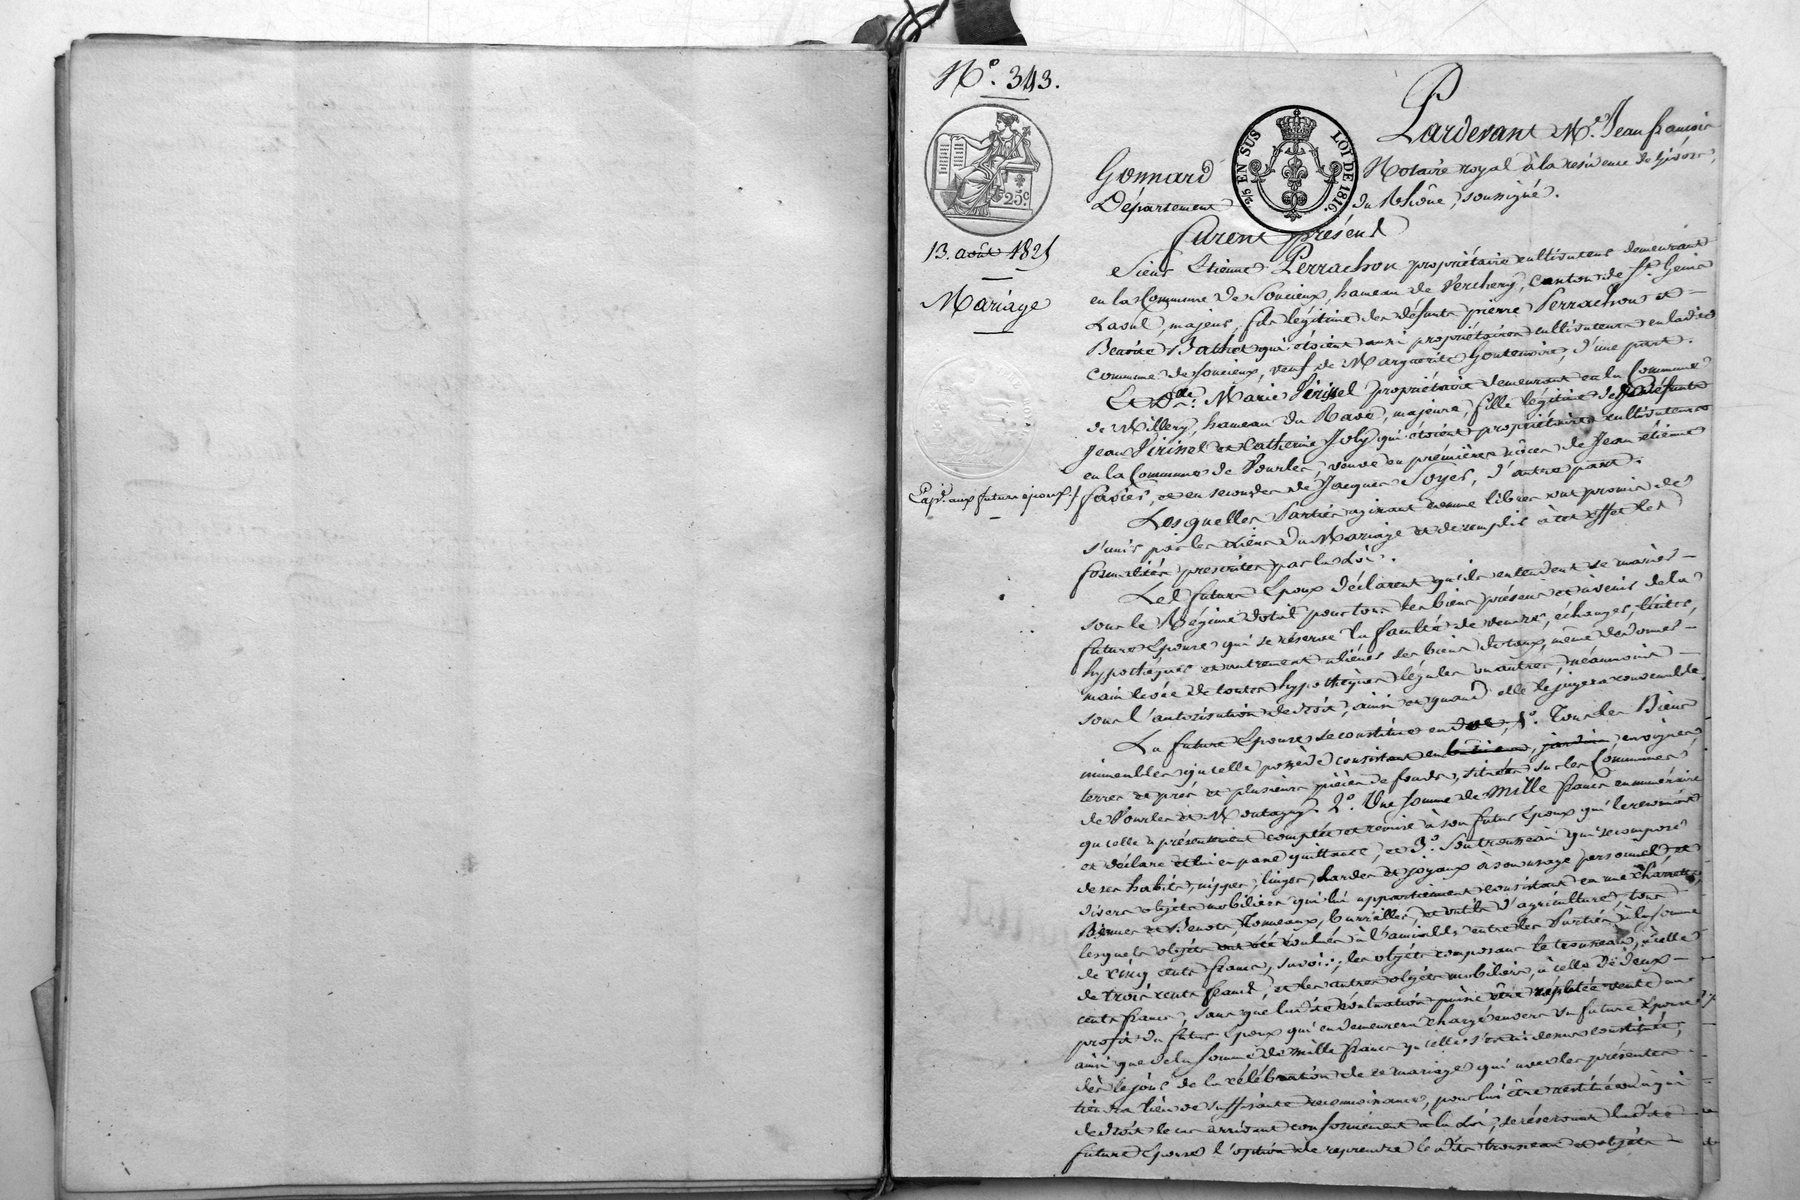 N.° 343.
25c
2/5 EN SUS LOI DE 1816.
13. août 1821
Mariage
Exp.on aux futurs époux /
Pardevant M.e Jean françois
Gonnard Notaire royal à la résidence de Givors,
Département du Rhône, soussigné.
Furent présens
Sieur Etienne Perrachon propriétaire cultivateur demeurant
en la Commune de Soucieux, hameau de Verchery, Canton de St. Genis
Laval, majeur, fils légitime des défunts pierre Perrachon et
Benoite qui étoient aussi propriétaires cultivateurs en ladite
commune de Soucieux, veuf de Marguerite Goutenoire, d'une part.
Et Dlle. Marie Pirissel propriétaire demeurant en la Commune
de Millery, hameau du Ravo, majeure, fille légitime de défunts
Jean Pirissel et Catherine Joly qui étoient propriétaires cultivateurs
en la Commune de Vourles, veuve en premières nôces de Jean étienne
et en secondes de Jacques Soyer, d'autre part.
Lesquelles Parties agissant comme libres ont promis de
s'unir par les liens du Mariage et de remplir à cet effet les
formalités prescrites par la Loi.
Les futurs Epoux déclarent qu'ils entendent se marier
sous le Régime dotal pour tous les biens présens et avenir de la
future Epouse qui se réserve la faculté de vendre, échanger, liciter,
hypothéquer et autrement aliéner ses biens dotaux, même de donner
main levée de toutes hypothèques légales ou autres, néanmoins
sous l'autorisation de droit, ainsi et quand elle le jugera convenable.
La future Epouse se constitue en dot, 1°. Tous les Biens
immeubles qu'elle possède consistant en jardin, en vignes,
terres et prés et plusieurs pièces de fonds, situées sur les Communes
de Vourles et Montagny. 2°. Une somme de Mille francs en numéraire
qu'elle a présentement comptée et remise à son futur Epoux qui le reconnoit
et déclare et lui en passe quittance, et 3°. Son trousseau qui se compose
de ses habits, nippes, linges, hardes et joyaux à son usage personnel, et
divers objets mobiliers qui lui appartiennent consistant en une charrette,
Bennes et Benots, Tonneaux, barrailles, et outils d'agriculture, tous
lesquels objets ont été évalués à l'amiable entre les Parties à la somme
de cinq cents francs, savoir; les objets composant le trousseau, à celle
de trois cents francs, et les autres objets mobiliers, à celle de deux
cents francs, sans que lad.te évaluation puisse être réputée vente au
profit du futur Epoux qui en demeurera chargé envers sa future Epouse
ainsi que de la somme de mille francs qu'elle s'est ci dessus constituée,
dès le jour de la célébration de ce mariage qui avec les présentes
tiendra lieu de suffisante reconnoissance, pour lui être restitué ou à qui
de droit le cas arrivant conformément à la Loi, se réservant ladite
future Epouse l'option de reprendre led.it trousseau et objets